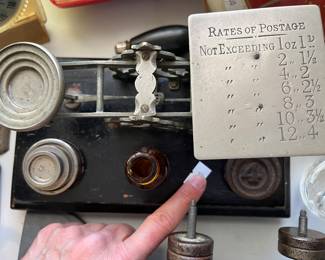 RATES OF POSTAGE
NOT EXCEEDING 1OZ 1D
" " 2 " 1½
" " 4 " 2
" " 6 " 2½
" " 8 " 3
" " 10 " 3½
" " 12 " 4